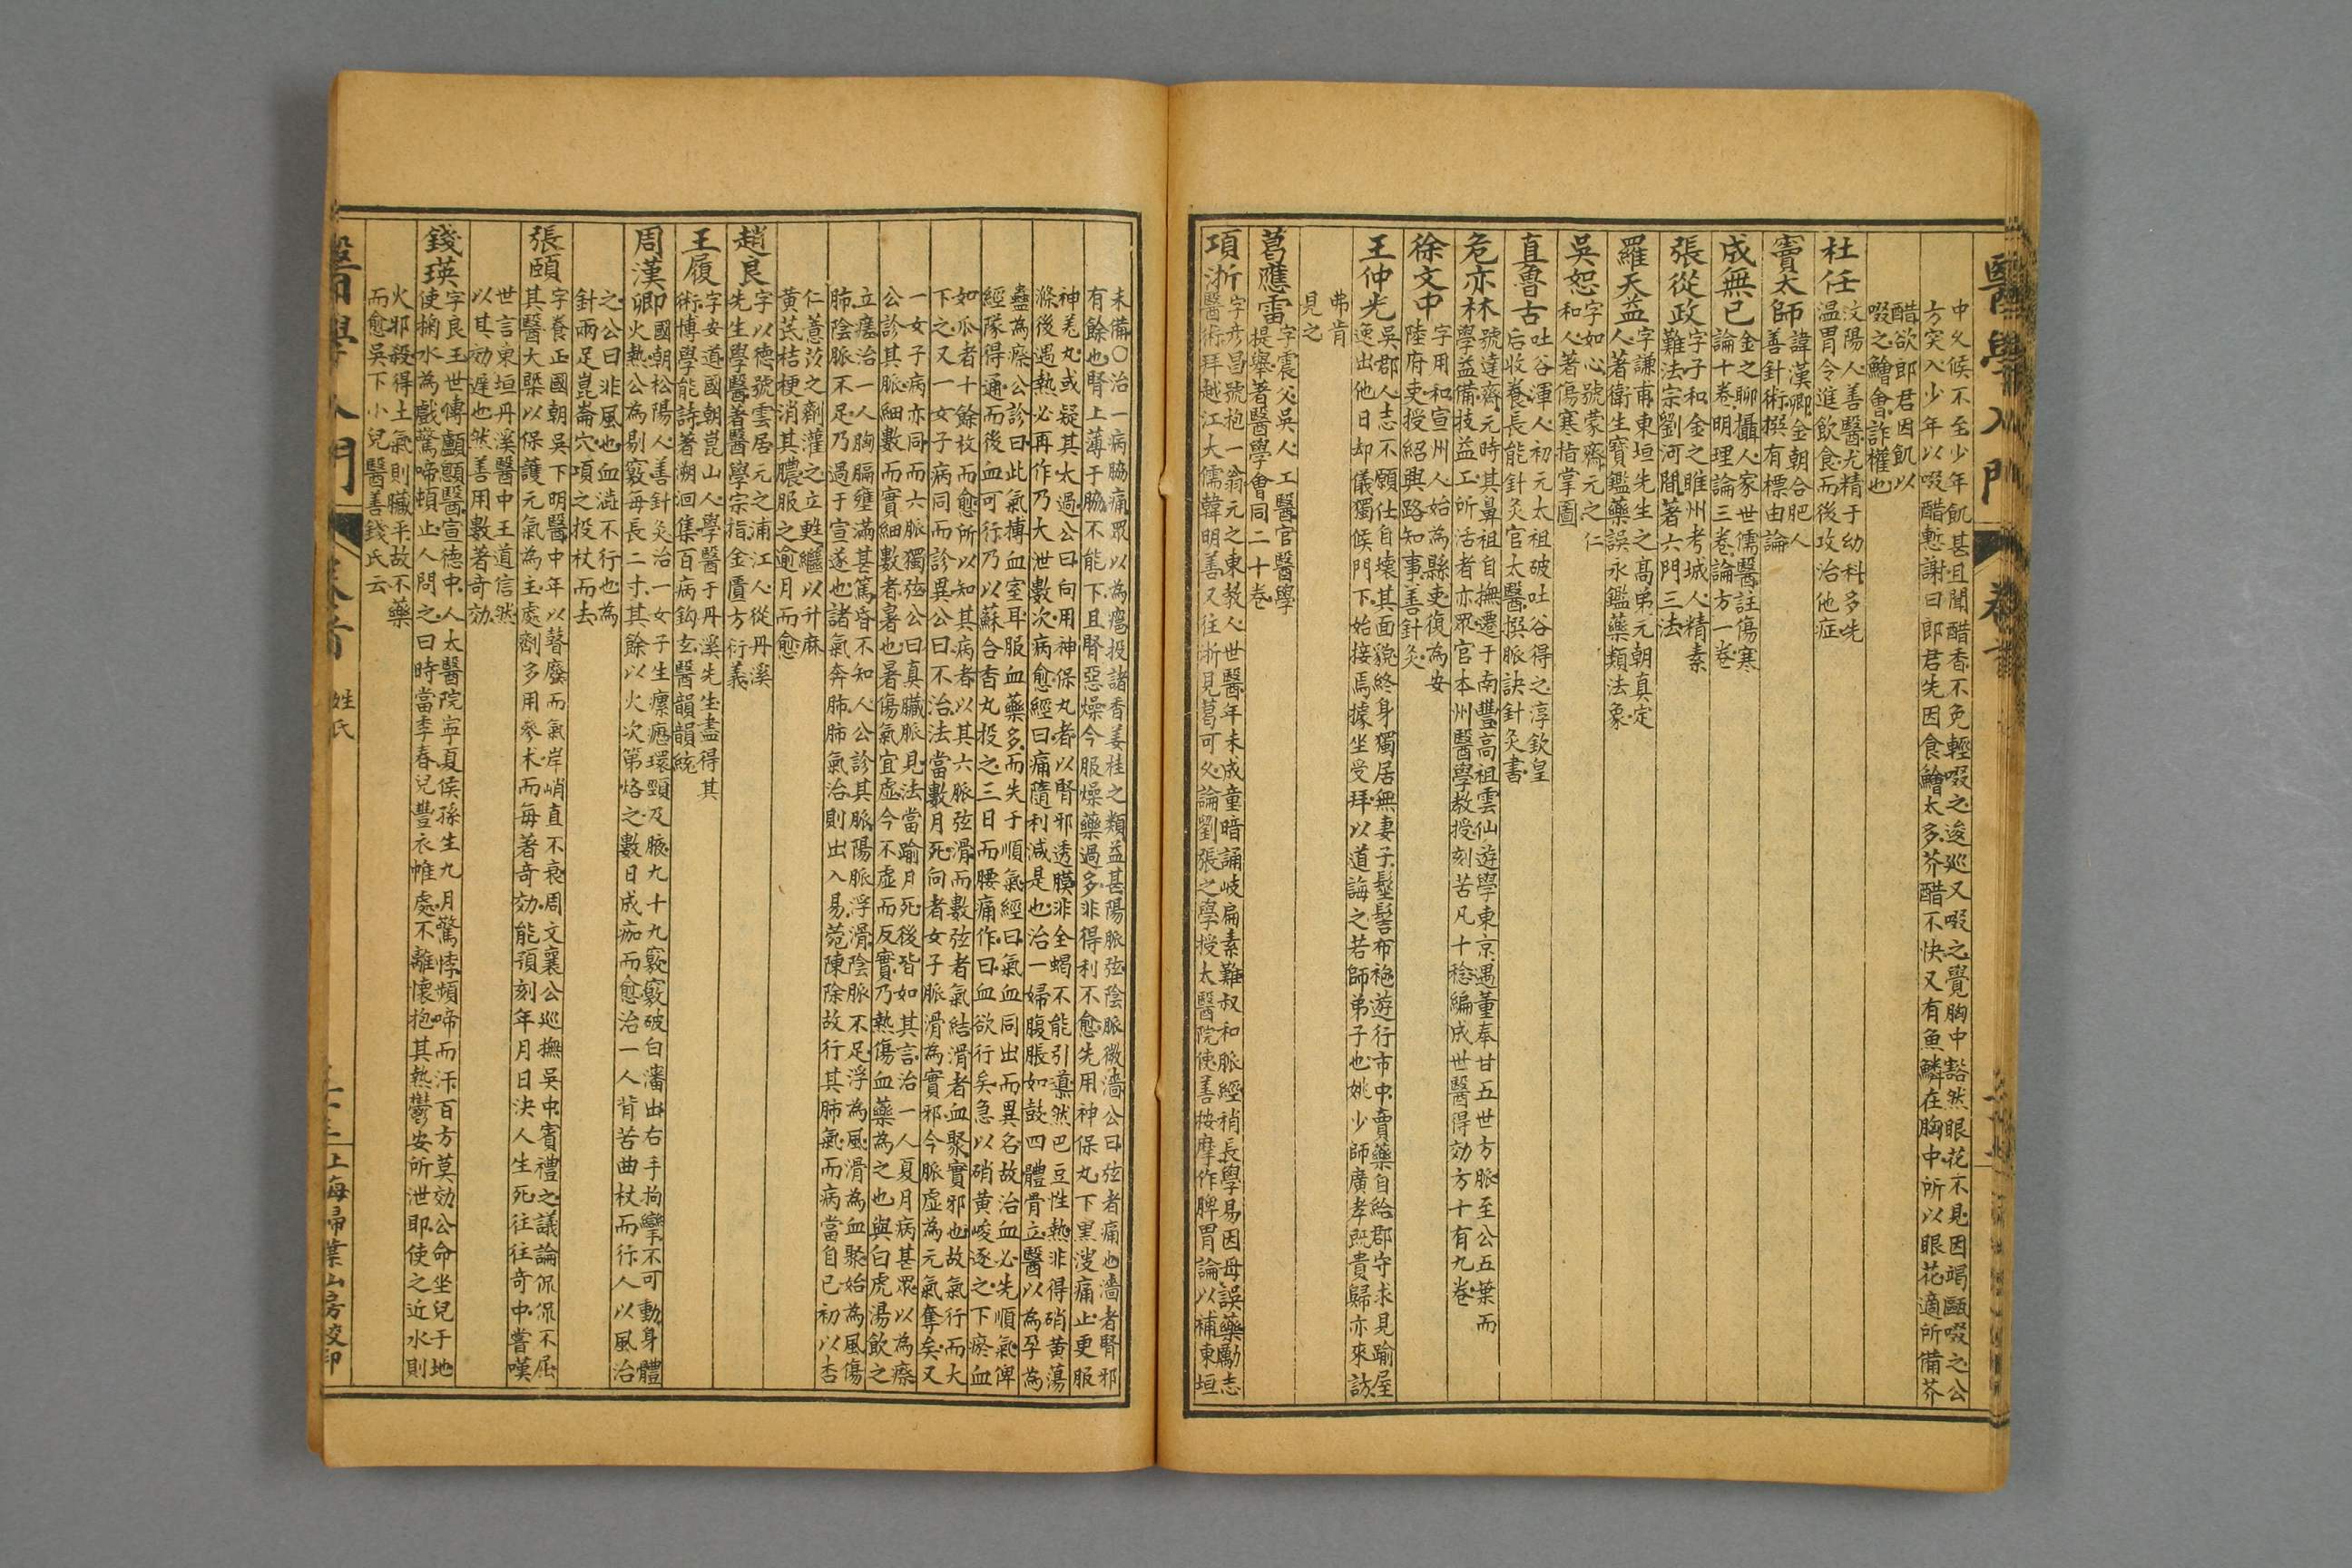 醫學入門
卷首
中久候不至少年飢甚且聞醋香不免輕啜之逡巡又啜之覺胸中豁然眼花不見因竭甌啜之公
方突入少年以啜醋慙謝曰郎君先因食鱠太多芥醋不快又有魚鱗在胸中所以眼花適所備芥
醋欲郎君因飢以
啜之鱠會詐權也
杜任
汶陽人善醫尤精于幼科多先
温胃令進飲食而後攻治他症
竇太師
諱漢卿金朝合肥人
善針術撰有標由論
成無已
金之聊攝人家世儒醫註傷寒
論十卷明理論三卷論方一卷
張從政
字子和金之睢州考城人精素
難法宗劉河間著六門三法
羅天益
字謙甫東垣先生之高弟元朝真定
人著衛生寶鑑藥誤永鑑藥類法象
吳恕
字如心號蒙齋元之仁
和人著傷寒指掌圖
直魯古
吐谷渾人初元太祖破吐谷得之淳欽皇
后收養長能針灸官太醫撰脈訣針灸書
危亦林
號達齋元時其鼻祖自撫遷于南豐高祖雲仙遊學東京遇董奉甘五世方脈至公五葉而
學益備技益工所活者亦眾官本州醫學教授刻苦凡十稔編成世醫得効方十有九卷
徐文中
字用和宣州人始為縣吏復為安
陸府吏授紹興路知事善針灸
王仲光
吳郡人志不願仕自壞其面貌終身獨居無妻子髽髻布袍遊行市中賣藥自給郡守求見踰屋
逸出他日却儀獨候門下始接焉據坐受拜以道誨之若師弟子也姚少師廣孝既貴歸亦來訪
弗肯
見之
葛應雷
字震父吳人工醫官醫學
提舉著醫學會同二十卷
項昕
字彥昌號抱一翁元之東教人世醫年未成童暗誦岐扁素難叔和脈經稍長學易因母誤藥勵志
醫術拜越江大儒韓明善又往浙見葛可父論劉張之學授太醫院使善按摩作脾胃論以補東垣
未備○治一病脇痛眾以為癰投諸香姜桂之類益甚陽脈弦陰脈微濇公曰弦者痛也濇者腎邪
有餘也腎上薄于脇不能下且腎惡燥今服燥藥過多非得利不愈先用神保丸下黑溲痛止更服
神芎丸或疑其太過公曰向用神保丸者以腎邪透膜非全蝎不能引導然巴豆性熱非得硝黄蕩
滌後遇熱必再作乃大泄數次病愈經曰痛隨利減是也治一婦腹脹如鼓四體骨立醫以為孕為
蠱為瘵公診曰此氣博血室耳服血藥多而失于順氣經曰氣血同出而異名故治血必先順氣俾
經隊得通而後血可行乃以蘇合香丸投之三日而腰痛作曰血欲行矣急以硝黄峻逐之下瘀血
如瓜者十餘枚而愈所以知其病者以其六脈弦滑而數弦者氣結滑者血聚實邪也故氣行而大
下之又一女子病同而診異公曰不治法當數月死向者女子脈滑為實邪今脈虛為元氣奪矣又
一女子病亦同而六脈獨弦公曰真臟脈見法當踰月死後皆如其言治一人夏月病甚眾以為瘵
公診其脈細數而實細數者暑也暑傷氣宜虛今不虛而反實乃熱傷血藥為之也與白虎湯飲之
立瘥治一人胸膈壅滿甚篤昏不知人公診其脈陽脈浮滑陰脈不足浮為風滑為血聚始為風傷
肺陰脈不足乃過于宣遂也諸氣奔肺肺氣治則出入易菀陳除故行其肺氣而病當自已初以杏
仁薏苡之劑灌之立甦繼以升麻
黄芪桔梗消其膿服之逾月而愈
趙良
字以德號雲居元之浦江人從丹溪
先生學醫著醫學宗指金匱方衍義
王履
字安道國朝崑山人學醫于丹溪先生盡得其
術博學能詩著溯洄集百病鉤玄醫韻韻統
周漢卿
國朝松陽人善針灸治一女子生瘰癧環頸及腋九十九竅竅破白瀋出右手拘攣不可動身體
火熱公為剔竅母長二寸其餘以火次第烙之數日成痂而愈治一人背苦曲杖而行人以風治
之公曰非風也血澁不行也為
針兩足崑崙穴頃之投杖而去
張頤
字養正國朝吳下明醫中年以瞽廢而氣岸峭直不衰周文襄公巡撫吳中賓禮之議論侃侃不屈
其醫大槩以保護元氣為主處劑多用參术而每著奇効能預刻年月日決人生死往往奇中嘗嘆
世言東垣丹溪醫中王道信然
以其効遲也然善用數著奇効
錢瑛
字良玉世傳顱顖醫宣德中人太醫院寧夏侯孫生九月驚悸頻啼而汗百方莫効公命坐兒于地
使掬水為戲驚啼頓止人問之曰時當李春兒豐衣帷處不離懷抱其熱鬱安所泄耶使之近水則
火邪殺得土氣則臟平故不藥
而愈吳下小兒醫善錢氏云
醫學入門
卷首
姓氏
上海掃葉山房校印